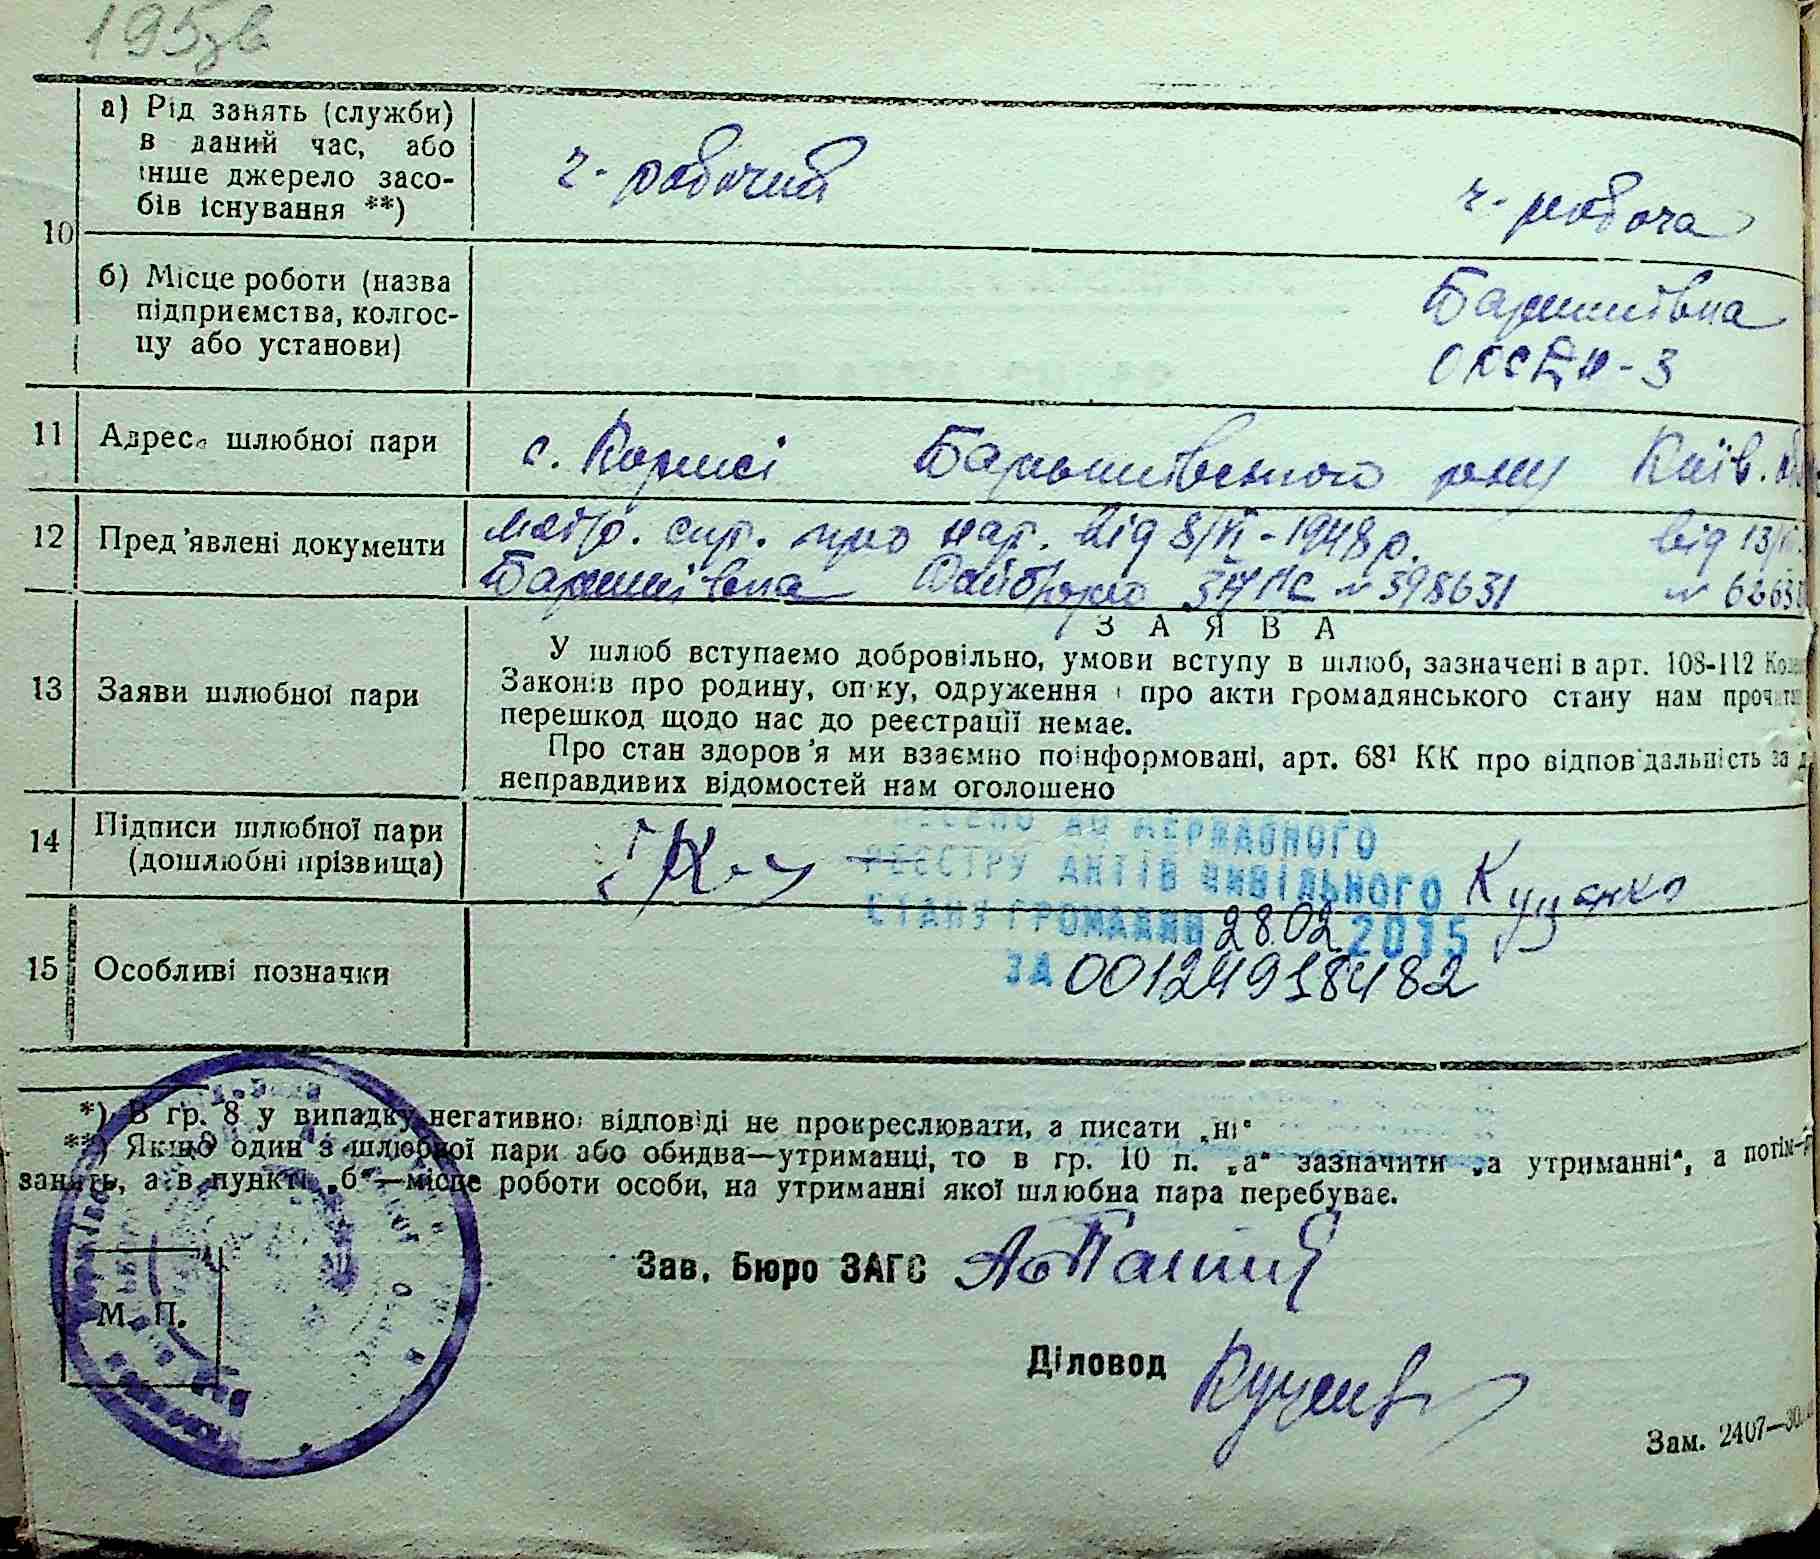 195зв
10
а) Рід занять (служби)
в даний час, або
інше джерело засо-
бів існування **)
ч-робочий
ч-робоча
б) Місце роботи (назва
підприємства, колгос-
пу або установи)
Баришівка
11 Адреса шлюбної пари
с. Коржі Баришівського р-ну Київ.
12 Пред'явлені документи
про нар. від 8/VI-1948 р. від 13/
Баришівка № 398631 №
З А Я В А
13 Заяви шлюбної пари
У шлюб вступаємо добровільно, умови вступу в шлюб, зазначені в арт. 108-112
Законів про родину, опіку, одруження і про акти громадянського стану нам
перешкод щодо нас до реєстрації немає.
Про стан здоров'я ми взаємно поінформовані, арт. 68¹ КК про відповідальність за
неправдивих відомостей нам оголошено
14 Підписи шлюбної пари
(дошлюбні прізвища)
Куценко
ВНЕСЕНО ДО ДЕРЖАВНОГО
РЕЄСТРУ АКТІВ ЦИВІЛЬНОГО
СТАНУ ГРОМАДЯН 28.02 2015
ЗА 00124918482
15 Особливі позначки
*) В гр. 8 у випадку негативної відповіді не прокреслювати, а писати „ні“
**) Якщо один з шлюбної пари або обидва—утриманці, то в гр. 10 п. „а“ зазначити „а утриманні“, а потім—
занять, а в пункті „б“—місце роботи особи, на утриманні якої шлюбна пара перебуває.
Зав. Бюро ЗАГС
М. П.
Діловод
Зам. 2407—30